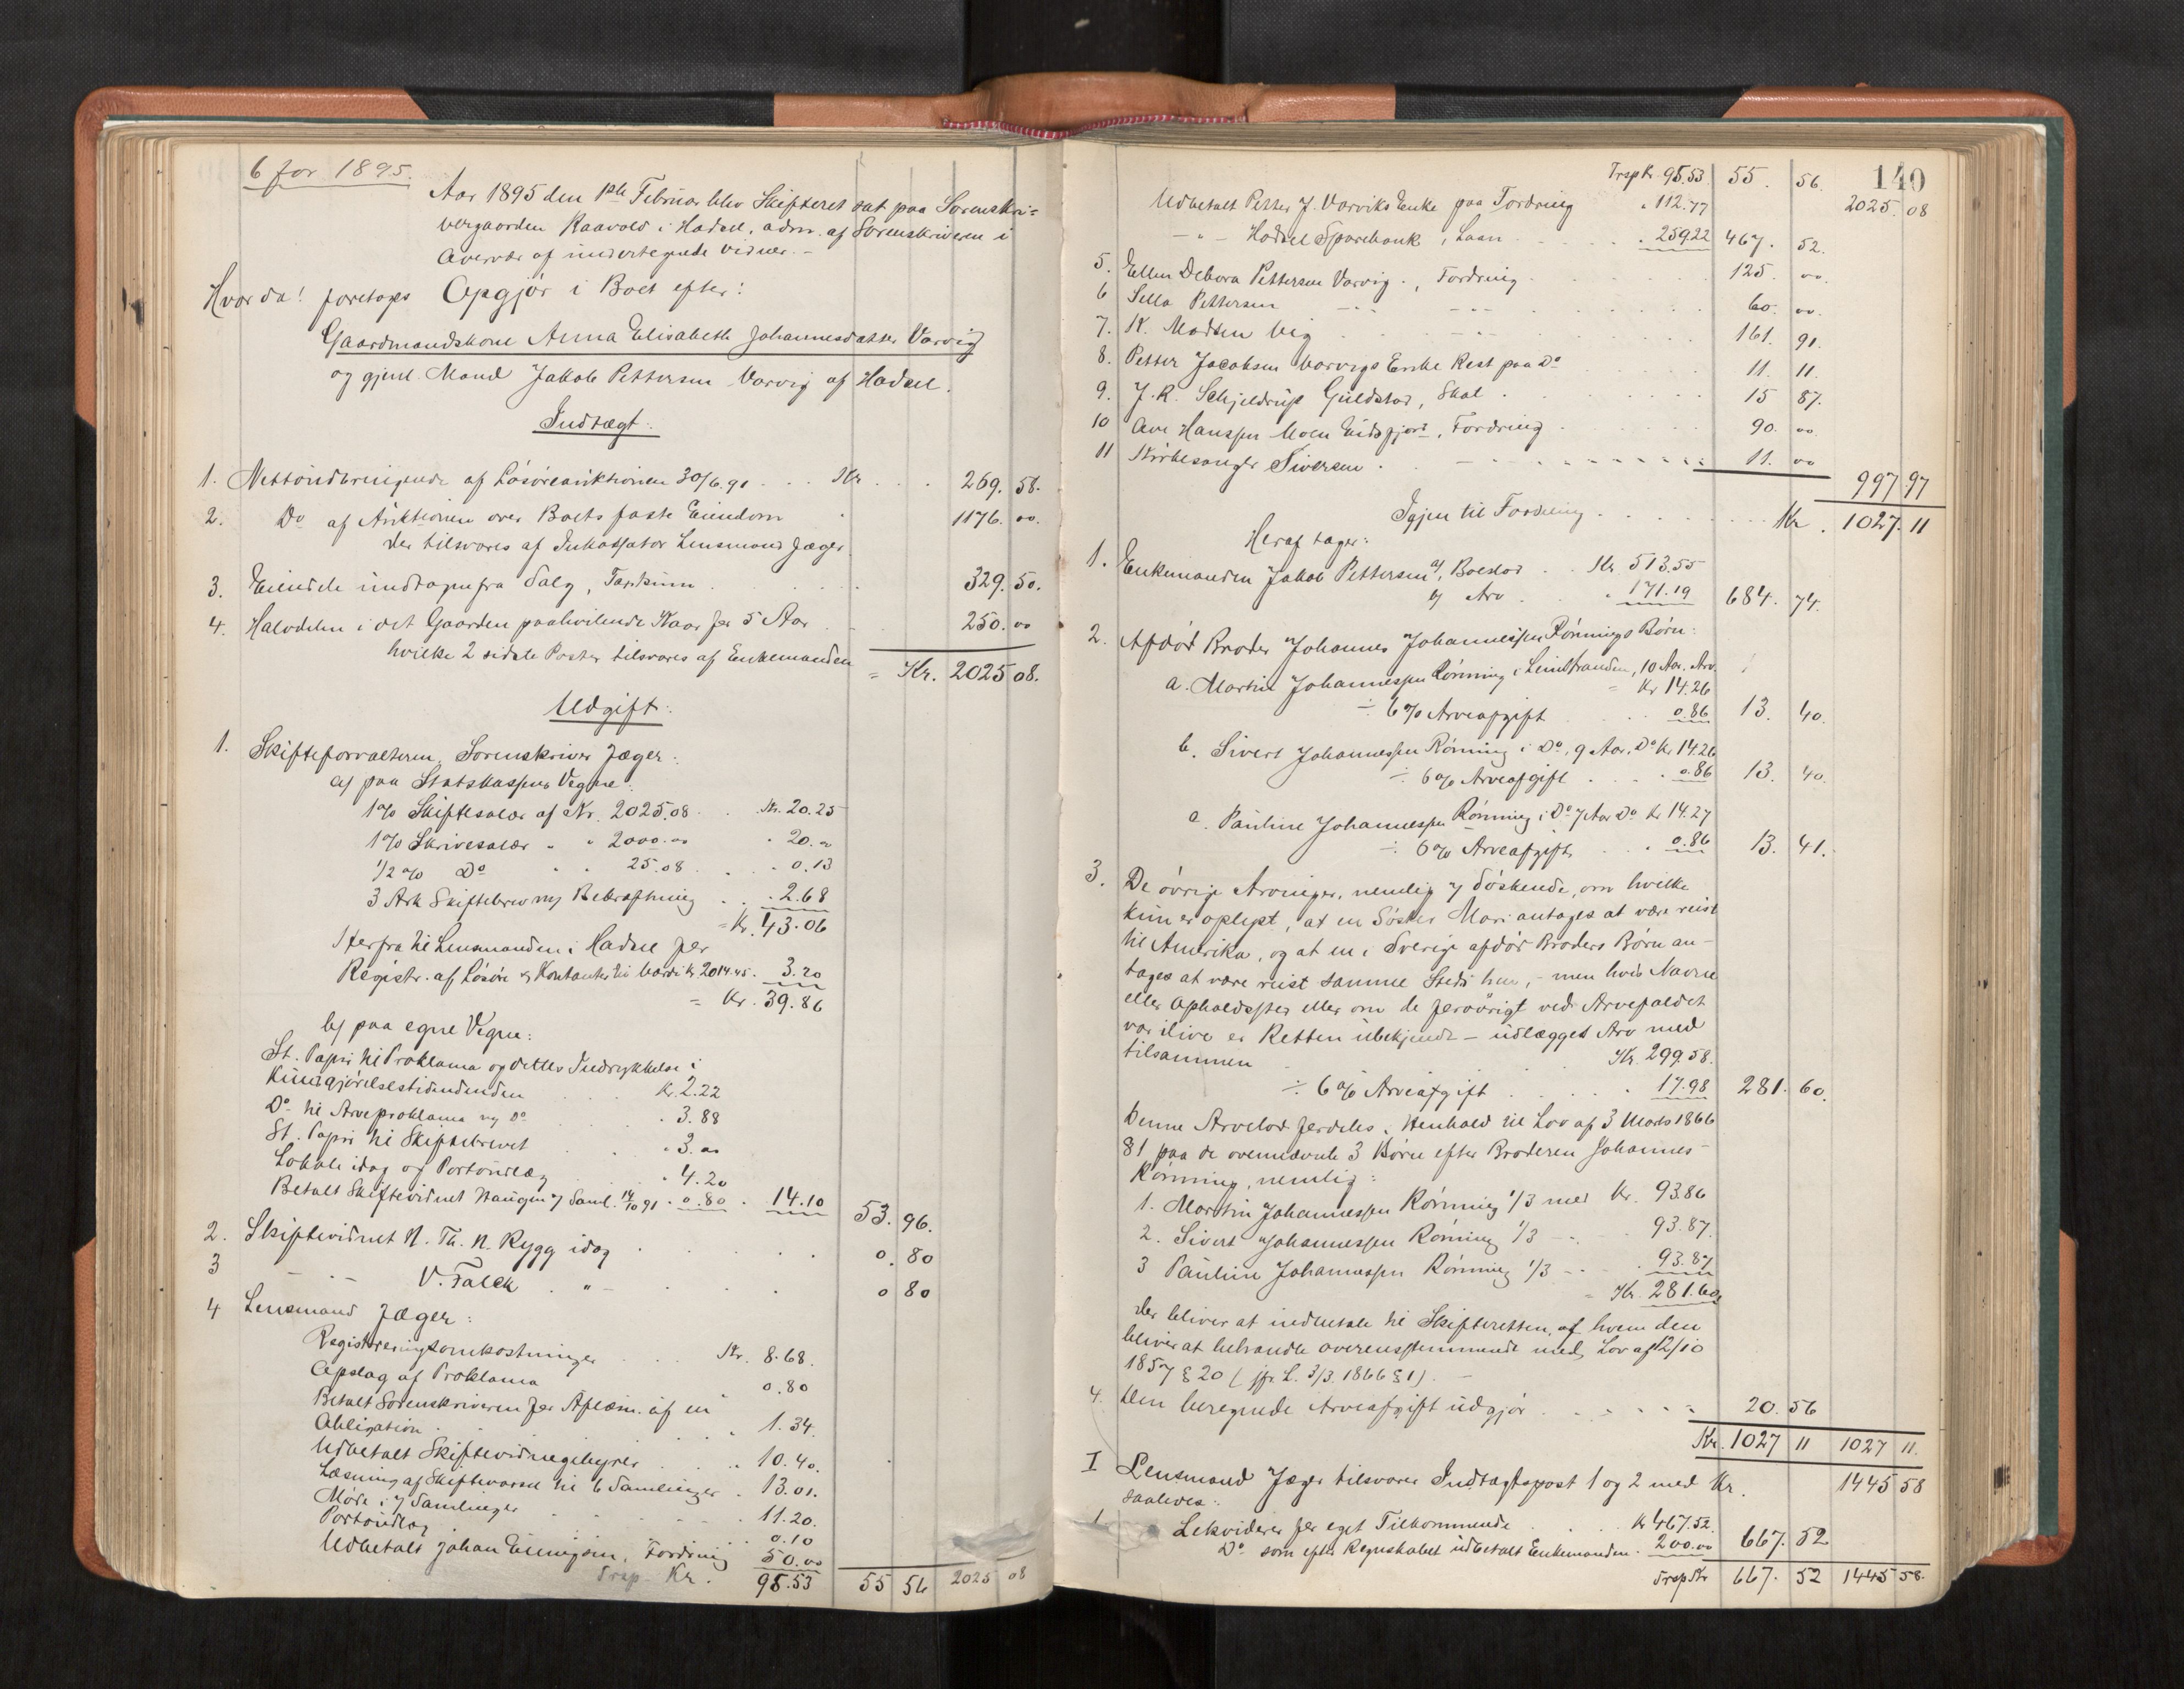 6 for 1895.
Aar 1895 den 1ste Februar blev Skifteret sat paa Sorenskri=
vergaarden Raavold i Hadsel, adm. af Sorenskriveren i
Overvær af undertegnede Vidner. -
Hvor da! foretoges Opgjør i Boet efter:
Gaardmandskone Anna Elisabeth Johannesdatter Varvig
og gjenl. Mand Jakob Pettersen Varvig af Hadsel.
Indtægt:
1. Nettoudbringende af Løsøreauktionen 30/6.91 . . . Kr . . . 269. 58.
2. Do af Auktionen over Boets faste Eiendom 1176. 00.
der tilsvares af Inkassator Lensmand Jæger
3. Eiendele undtagne fra Salg, 329. 50.
4. Halvdelen i det Gaarden paahvilende Kaar for 5 Aar 250. 00
hvilke 2 sidste Poster tilsvares af Enkemanden
= Kr. 2025 08.
Udgift:
1. Skifteforvalteren, Sorenskriver Jæger:
a) paa Statskassens Vegne:
1% Skiftesalær af Kr. 2025.08 . . Kr. 20.25
1% Skrivesalær " " 2000.00 " 20.00
1/2% Do " " 25.08 . . 0.13
3 Ark Skiftebrev m/ Bekræftning . . 2.68
= Kr. 43.06
Herfra til Lensmanden i Hadsel for
Registr. af Løsøre & Kontanter til Værdi Kr 2014.45. 3.20
= Kr. 39.86
b) paa egne Vegne:
St. Papir til Proklama og dettes Indrykkelse i
Kundgjørelsestidenden Kr. 2.22
Do til Arveproklama m/ Do " 3.88
St. Papir til Skiftebrevet " 3.00
Lokale idag og Portoudlæg " 4.20
Betalt Skiftevidnet Haugen / Saml. 14/10 91 " 0.80 " 14.10 53. 96.
2. Skiftevidnet N. Th. N. Rygg idag . . . . 0. 80
3 - " - V. Falck . " . . . 0 80
4 Lensmand Jæger:
Registreringsomkostninger . . . Kr. 8.68.
Opslag af Proklama 0.80
Betalt Sorenskriveren for Aflæsn. af en
Obligation . . . . . 1.34.
Udbetalt Skiftevidnegebyrer . . " 10.40.
Læsning af Skiftevarsel til 6 Samlinger . 13.01.
Møde i 7 Samlinger . . . . . 11.20.
Portoudlæg . . . . . 0.10
Udbetalt Johan Fordring 50.00
Trsp Kr. 95.53 55 56 2025 08
140
Trsp Kr. 95.53 55. 56.
2025. 08
Udbetalt Petter J. Varviks Enke paa Fordring " 112.77
- " - Hadsel Sparebank, Laan . . . . . 259.22 467. 52.
5. Ellen Debora Pettersen Varvig . , Fordring . . . 125. 00.
6 Sella Pettersen - " - - " - 60. 00.
7. K. Madsen Vig - " - 161. 91.
8. Petter Jacobsen Varvigs Enke Rest paa Do 11. 11.
9. J. R. Schjeldrup Guldstad, Skat . . . . 15 87.
10 Ane Hanssen Moen Eidsfjord, Fordring . . . 90. 00
11 Kirkesanger Siversen . - - - - 11. 00
997 97
Igjen til Fordeling . . . . . . Kr . 1027. 11
Heraf tager:
1. Enkemanden Jakob Pettersen a/ Boeslod . . Kr. 513.55
b/ Arv . . " 171.19 684. 74.
2. Afdød Broder Johannes Johannessen Rønnings Børn:
a. Martin Johannessen Rønning i Leinstranden, 10 Aar, Arv
Kr 14.26
÷ 6% Arveafgift . . 0.86 13. 40.
b. Sivert Johannessen Rønning i Do, 9 Aar, Do Kr 14.26
÷ 6% Arveafgift . . . . 0.86 13. 40.
c. Pauline Johannessen Rønning i Do 7 Aar Do Kr 14.27
÷ 6% Arveafgift . . . 0.86 13. 41.
3. De øvrige Arvinger, nemlig 7 Søskende, om hvilke
kun er oplyst, at en Søster Mari antages at være reist
til Amerika, og at en i Sverige afdød Broders Børn an-
tages at være reist samme Sted hen, - men hvis Navne
eller Opholdssted eller om de forøvrigt ved Arvefaldet
var ilive er Retten ubekjendt - udlægges Arv med
tilsammen Kr. 299.58.
÷ 6% Arveafgift . . . . " 17.98 281. 60.
Denne Arvelod fordeles i Henhold til Lov af 3 Marts 1866
§ 1 paa de ovennævnte 3 Børn efter Broderen Johannes
Rønning, nemlig:
1. Martin Johannessen Rønning 1/3 med Kr. 93.86
2. Sivert Johannessen Rønning 1/3 - " - 93.87.
3 Pauline Johannessen Rønning 1/3 - " . 93.87
= Kr. 281.60
der bliver at indbetale til Skifteretten, af hvem den
bliver at behandle overensstemmende med Lov af 12/10
1857 § 20 (jfr. L. 3/3. 1866 § 1). -
4. Den beregnede Arveafgift udgjør . - - - - 20. 56
Kr. 1027 11 1027 11.
I Lensmand Jæger tilsvarer Indtægtspost 1 og 2 med Kr. 1445 58
saaledes:
1 Lekviderer for eget Tilkommende . . . Kr 467.52.
Do som efter Regnskabet udbetalt Enkemanden . 200.00 667. 52
Trsp Kr 667. 52 1445 58.